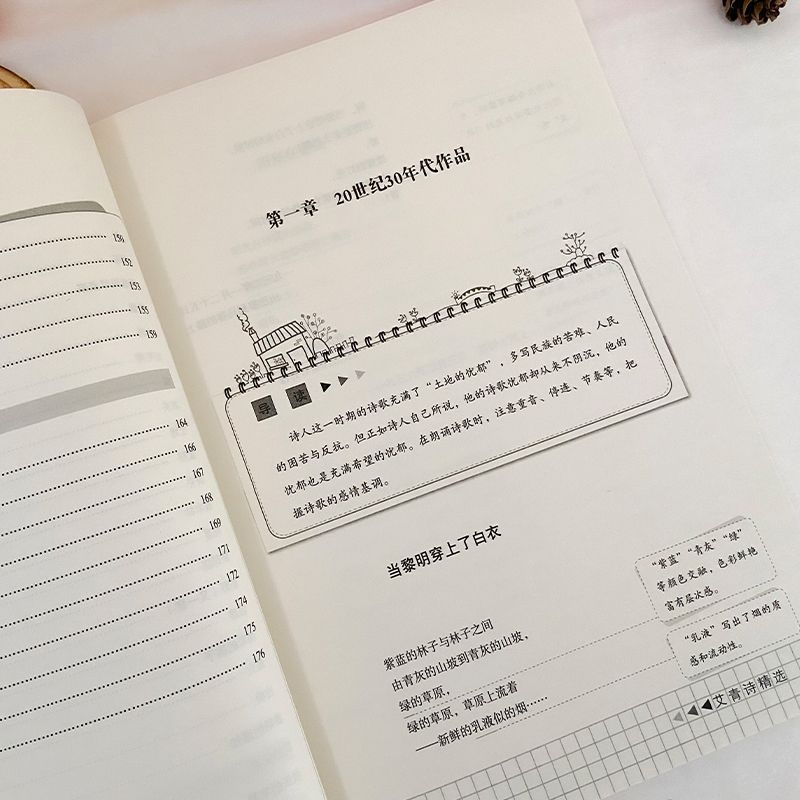 150
152
153
155
159
164
166
167
168
169
171
172
174
175
176
第一章 20世纪30年代作品
导 读
诗人这一时期的诗歌充满了“土地的忧郁”，多写民族的苦难、人民
的困苦与反抗。但正如诗人自己所说，他的诗歌忧郁却从来不阴沉，他的
忧郁也是充满希望的忧郁。在朗诵诗歌时，注意重音、停连、节奏等，把
握诗歌的感情基调。
当黎明穿上了白衣
紫蓝的林子与林子之间
由青灰的山坡到青灰的山坡，
绿的草原，
绿的草原，草原上流着
——新鲜的乳液似的烟……
“紫蓝”“青灰”“绿”
等颜色交融，色彩鲜艳
富有层次感。
“乳液”写出了烟的质
感和流动性。
艾青诗精选